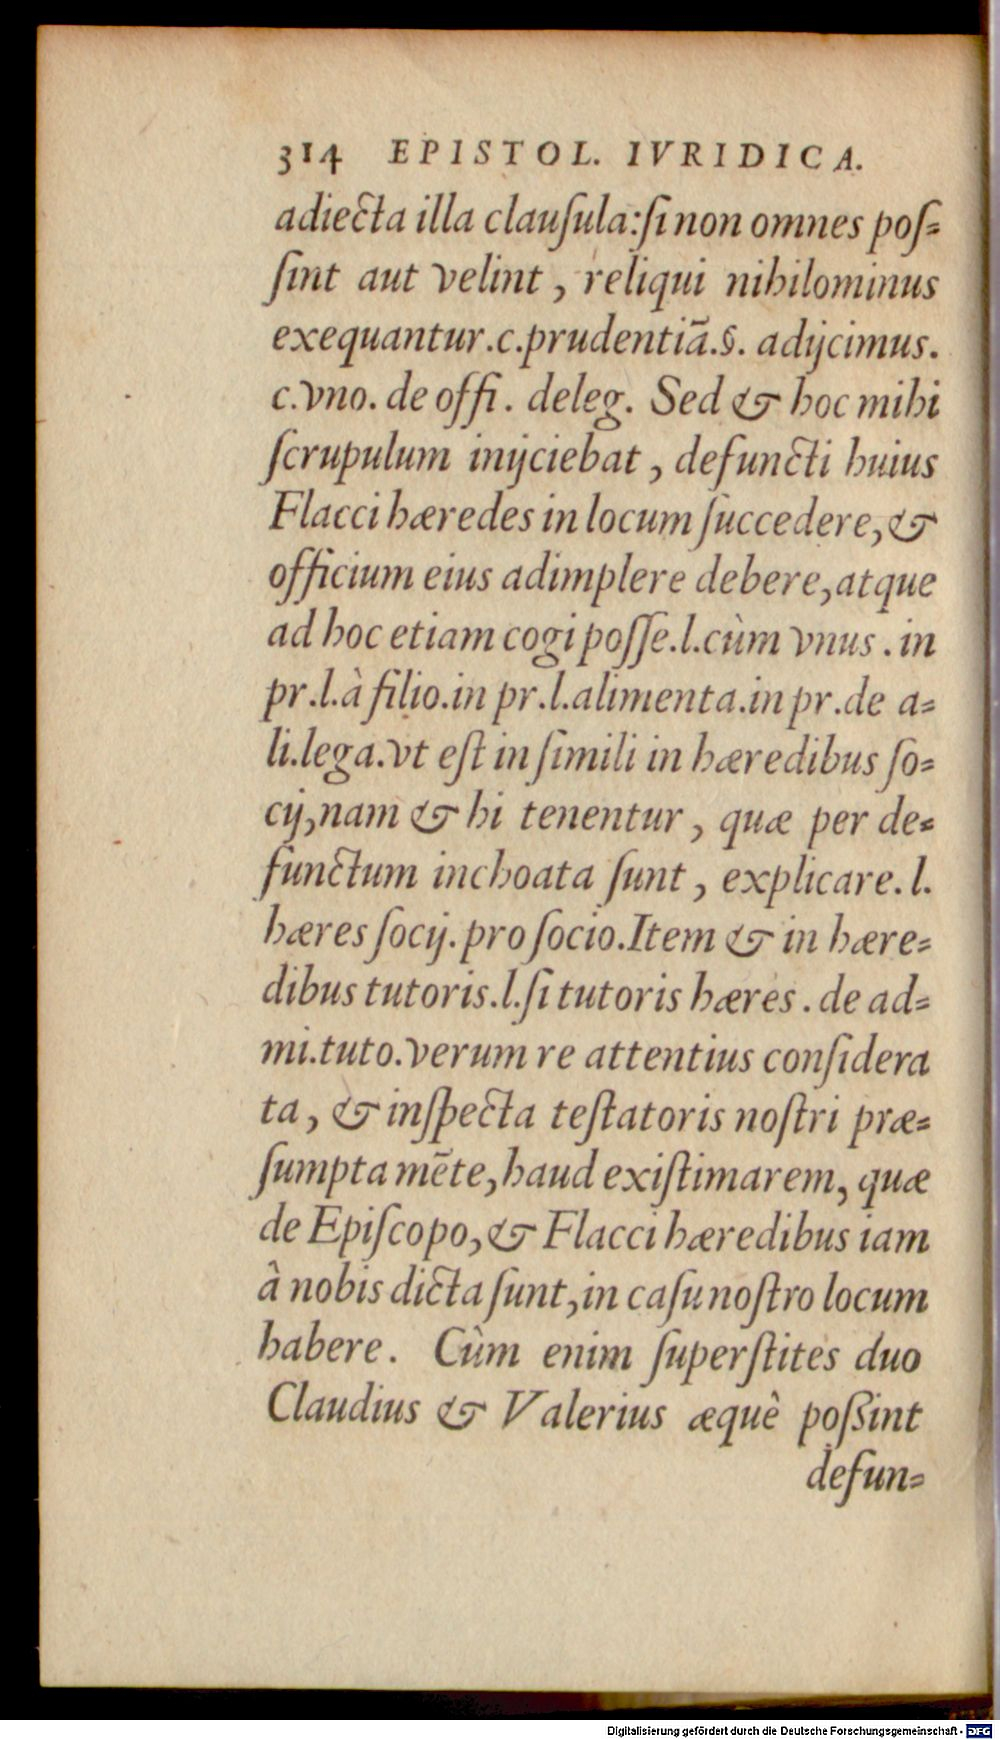 314 EPISTOL. IVRIDICA.
adiecta illa clauſula:ſi non omnes poſ=
ſint aut velint, reliqui nihilominus
exequantur.c.prudentiã.§. adijcimus.
c.vno. de offi. deleg. Sed & hoc mihi
ſcrupulum inijciebat, defuncti huius
Flacci hæredes in locum ſuccedere, &
officium eius adimplere debere, atque
ad hoc etiam cogi poſſe.l.cùm vnus. in
pr.l.à filio.in pr.l.alimenta.in pr.de a=
li.lega.vt eſt in ſimili in hæredibus ſo=
cij, nam & hi tenentur, quæ per de=
functum inchoata ſunt, explicare. l.
hæres ſocij. pro ſocio. Item & in hære=
dibus tutoris.l.ſi tutoris hæres. de ad=
mi.tuto.verum re attentius conſidera
ta, & inſpecta teſtatoris noſtri præ=
ſumpta mẽte, haud exiſtimarem, quæ
de Epiſcopo, & Flacci hæredibus iam
à nobis dicta ſunt, in caſu noſtro locum
habere. Cùm enim ſuperſtites duo
Claudius & Valerius æquè poßint
defun=
Digitalisierung gefördert durch die Deutsche Forschungsgemeinschaft - DFG